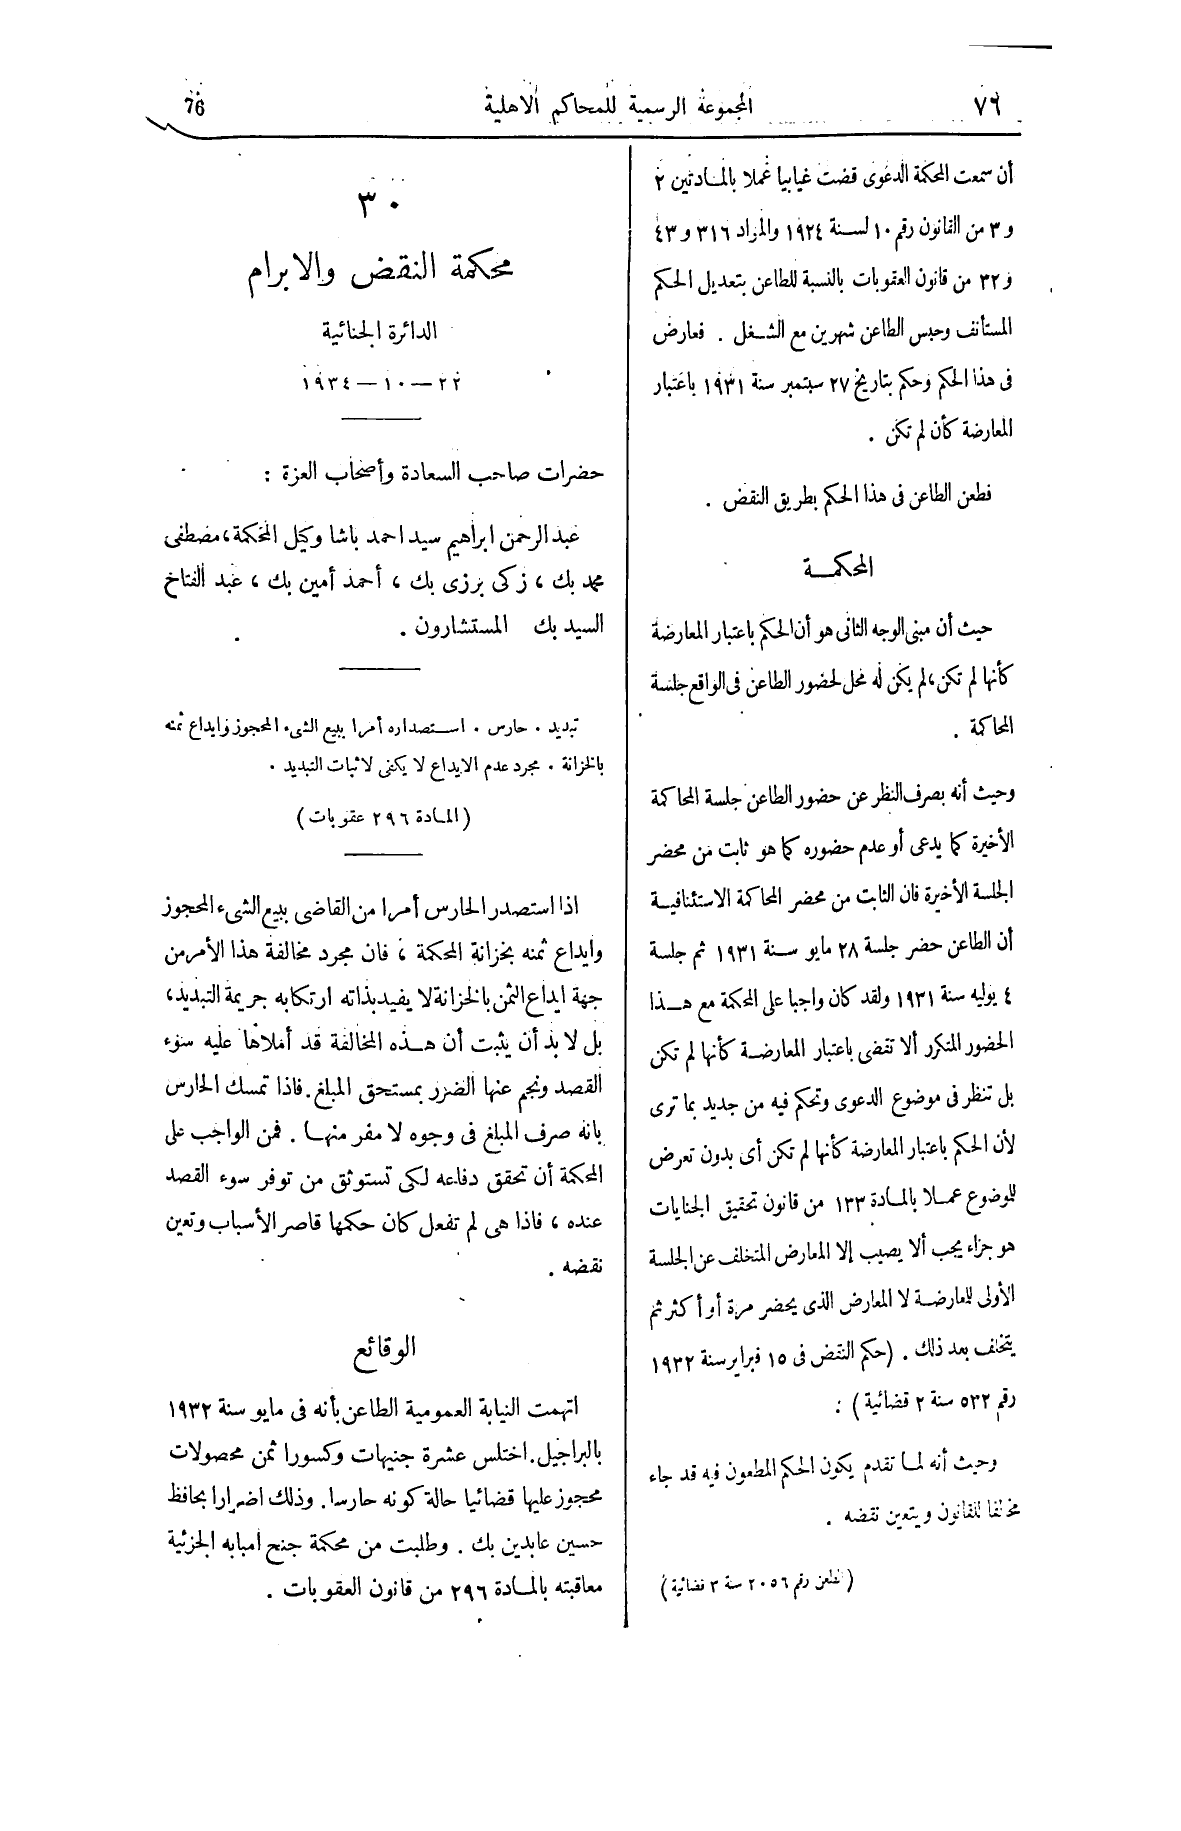 ٧٦ المجموعة الرسمية للمحاكم الأهلية 76
أن سمعت المحكمة الدعوى قضت غيابيا عملا بالمادتين ٢
و ٣ من القانون رقم ١٠ لسنة ١٩٢٤ والمواد ٣١٦ و ٤٣
و ٣٢ من قانون العقوبات بالنسبة للطاعن بتعديل الحكم
المستأنف وحبس الطاعن شهرين مع الشغل . فعارض
فى هذا الحكم وحكم بتاريخ ٢٧ سبتمبر سنة ١٩٣١ باعتبار
المعارضة كأن لم تكن .
فطعن الطاعن فى هذا الحكم بطريق النقض .
المحكمة
حيث أن مبنى الوجه الثانى هو أن الحكم باعتبار المعارضة
كأنها لم تكن، لم يكن له محل لحضور الطاعن فى الواقع جلسة
المحاكمة .
وحيث أنه بصرف النظر عن حضور الطاعن جلسة المحاكمة
الأخيرة كما يدعى أو عدم حضوره كما هو ثابت من محضر
الجلسة الأخيرة فان الثابت من محضر المحاكمة الاستئنافية
أن الطاعن حضر جلسة ٢٨ مايو سنة ١٩٣١ ثم جلسة
٤ يوليه سنة ١٩٣١ ولقد كان واجبا على المحكمة مع هذا
الحضور المتكرر ألا تقضى باعتبار المعارضة كأنها لم تكن
بل تنظر فى موضوع الدعوى وتحكم فيه من جديد بما ترى
لأن الحكم باعتبار المعارضة كأنها لم تكن أى بدون تعرض
للموضوع عملا بالمادة ١٣٣ من قانون تحقيق الجنايات
هو جزاء يجب ألا يصيب إلا المعارض المتخلف عن الجلسة
الأولى للمعارضة لا المعارض الذى يحضر مرة أو أكثر ثم
يتخلف بعد ذلك . (حكم النقض فى ١٥ فبراير سنة ١٩٣٢
رقم ٥٣٢ سنة ٢ قضائية) :
وحيث أنه لما تقدم يكون الحكم المطعون فيه قد جاء
مخالفا للقانون ويتعين نقضه .
(لطعن رقم ٢٠٥٦ سنة ٣ قضائية)
٣٠
محكمة النقض والابرام
الدائرة الجنائية
٢٢ — ١٠ — ١٩٣٤
حضرات صاحب السعادة وأصحاب العزة :
عبد الرحمن ابراهيم سيد احمد باشا وكيل المحكمة، مصطفى
محمد بك ، زكى برزى بك ، أحمد أمين بك ، عبد الفتاح
السيد بك المستشارون .
تبديد . حارس . استصداره أمرا ببيع الشىء المحجوز وايداع ثمنه
بالخزانة . مجرد عدم الايداع لا يكفى لاثبات التبديد .
(المادة ٢٩٦ عقوبات)
اذا استصدر الحارس أمرا من القاضى ببيع الشىء المحجوز
وايداع ثمنه بخزانة المحكمة ، فان مجرد مخالفة هذا الأمر من
جهة ايداع الثمن بالخزانة لا يفيد بذاته ارتكابه جريمة التبديد،
بل لا بد أن يثبت أن هذه المخالفة قد أملاها عليه سوء
القصد ونجم عنها الضرر بمستحق المبلغ . فاذا تمسك الحارس
بانه صرف المبلغ فى وجوه لا مفر منها . فمن الواجب على
المحكمة أن تحقق دفاعه لكى تستوثق من توفر سوء القصد
عنده ، فاذا هى لم تفعل كان حكمها قاصر الأسباب وتعين
نقضه .
الوقائع
اتهمت النيابة العمومية الطاعن بأنه فى مايو سنة ١٩٣٢
بالبراجيل . اختلس عشرة جنيهات وكسورا ثمن محصولات
محجوز عليها قضائيا حالة كونه حارسا . وذلك اضرارا بحافظ
حسين عابدين بك . وطلبت من محكمة جنح امبابه الجزئية
معاقبته بالمادة ٢٩٦ من قانون العقوبات .